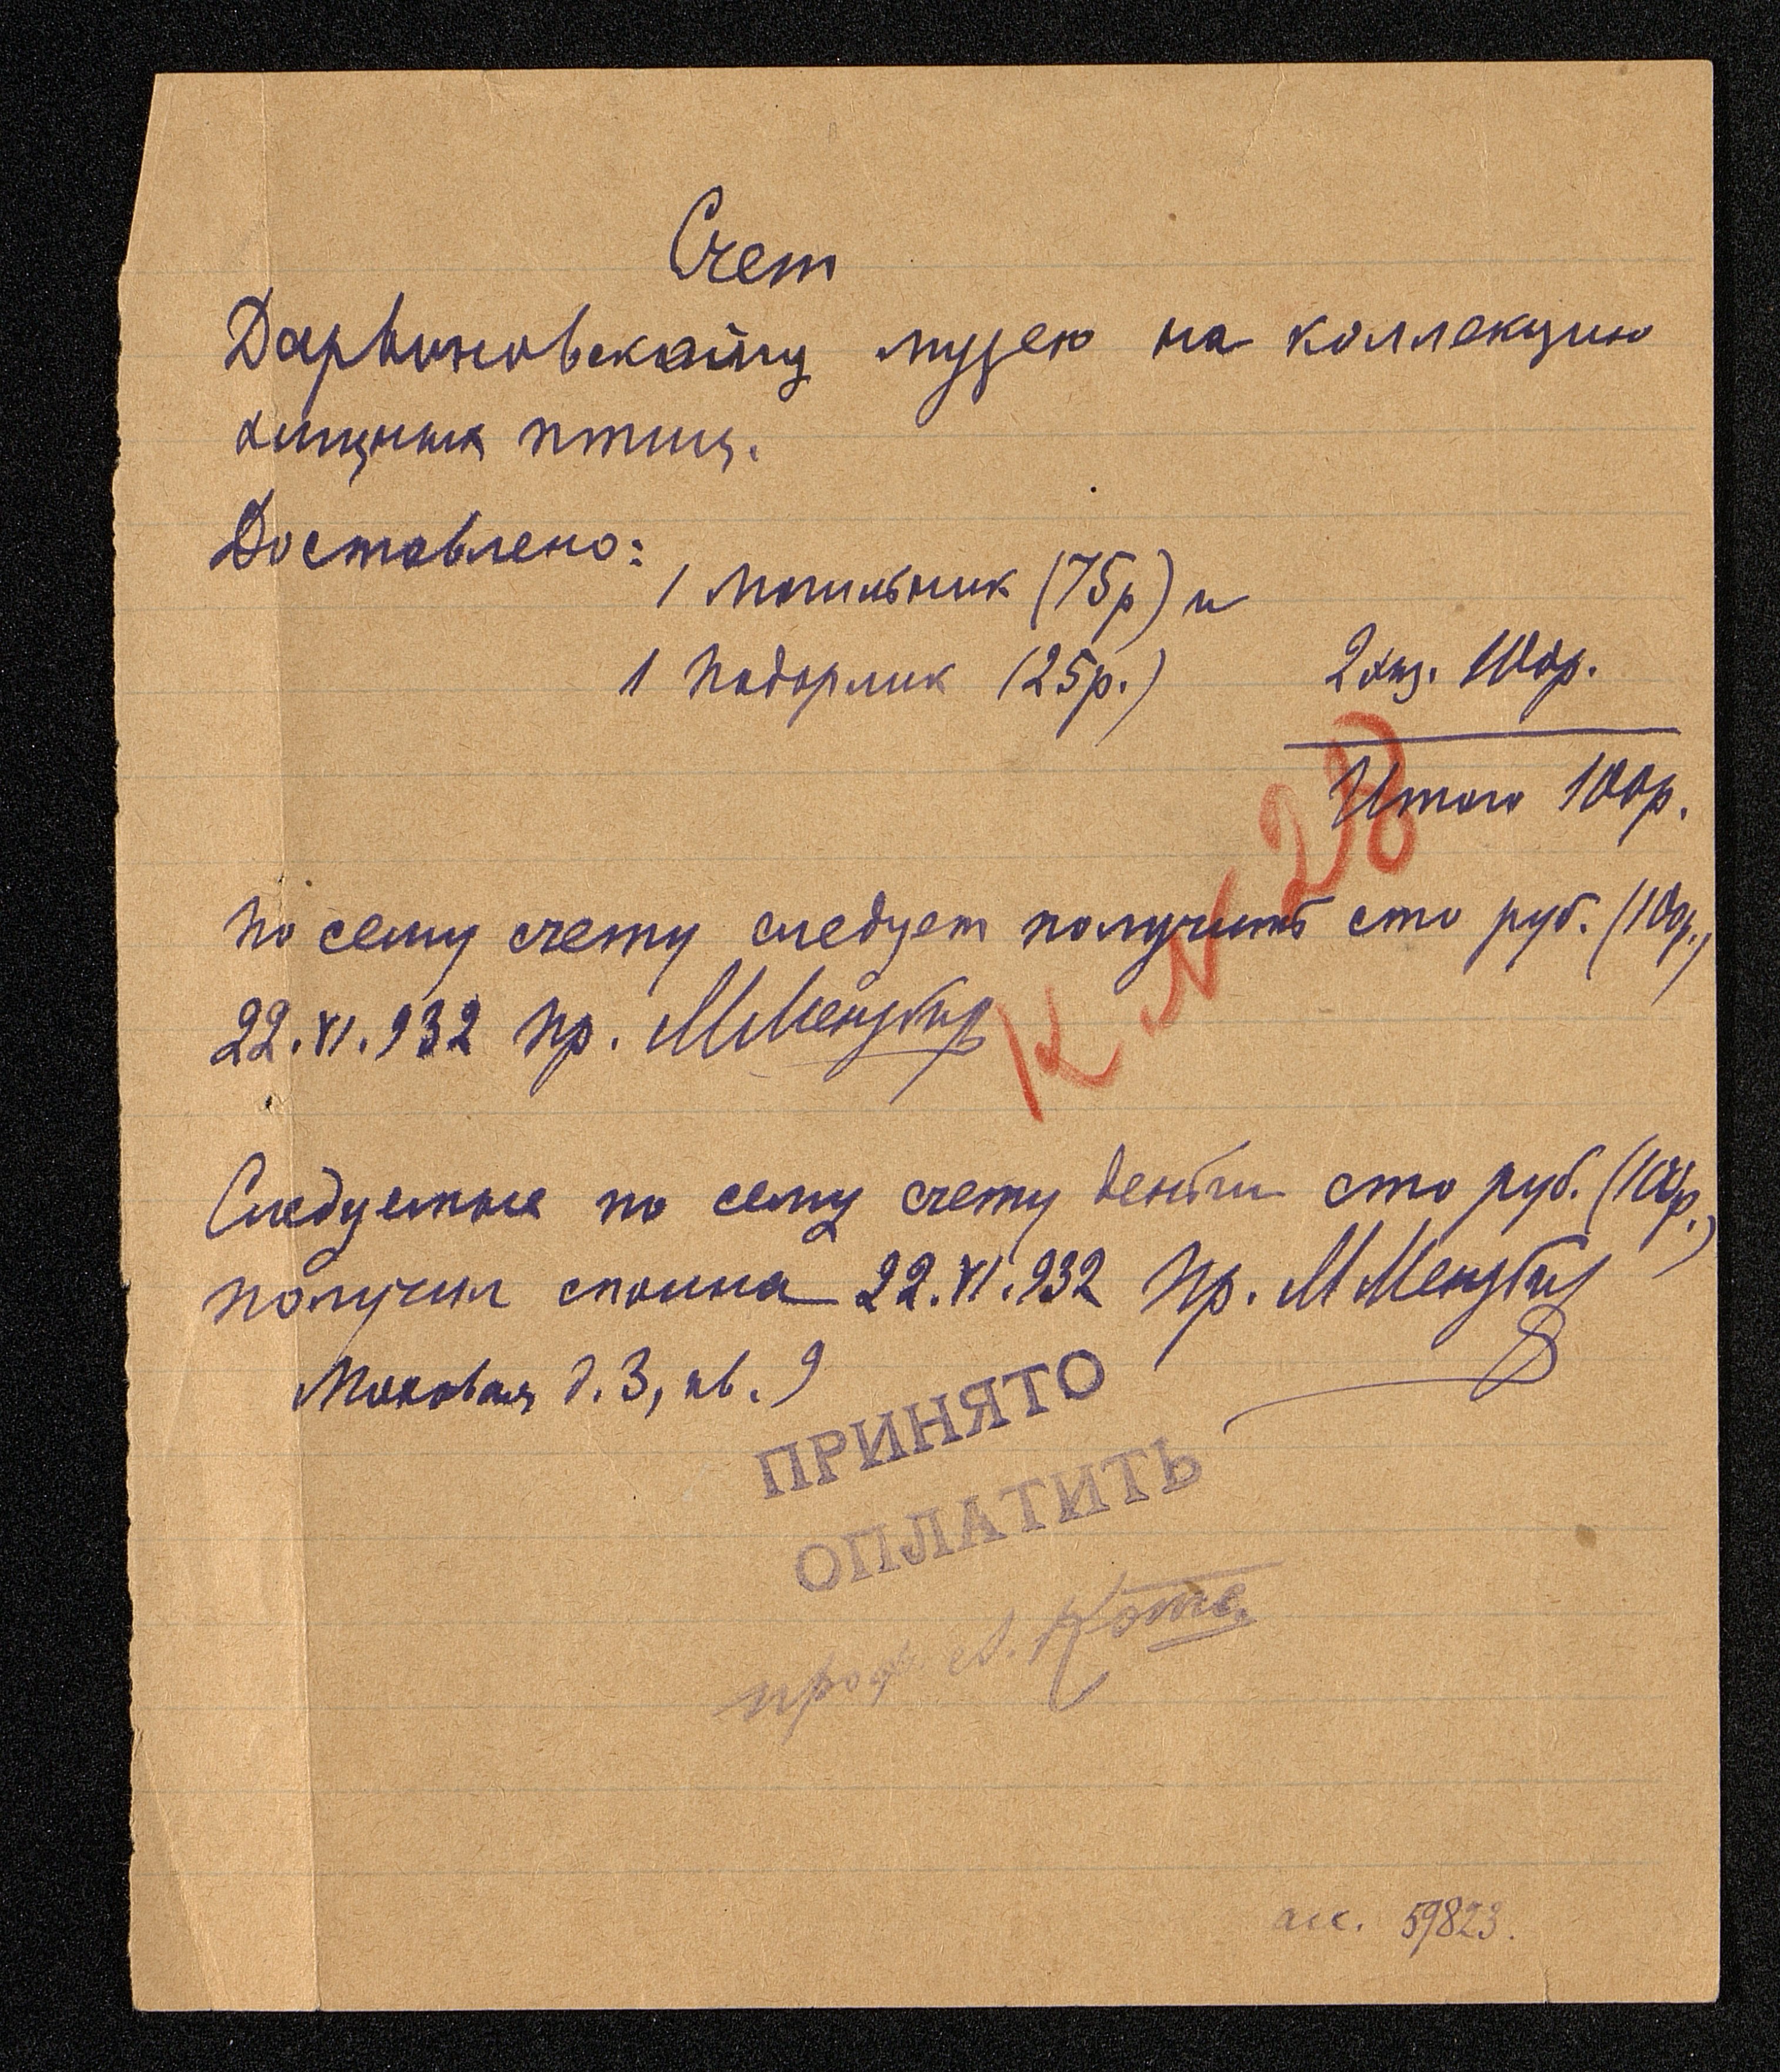 Счет
Дарвиновскому музею на коллекцию
хищных птиц.
Доставлено:
1 могильник (75р) и
1 подорлик (25р.)
2 экз. 100р.
Итого 100р.
К № 28
По сему счету следует получить сто руб. (100р.)
22.VI.932 Пр. ММензбир
Следуемые по сему счету деньги сто руб. (100р.)
получил сполна 22.VI.932 Пр. ММензбир
Моховая д. 3, кв. 9
ПРИНЯТО
ОПЛАТИТЬ
проф. А. Котс
асс. 59823.